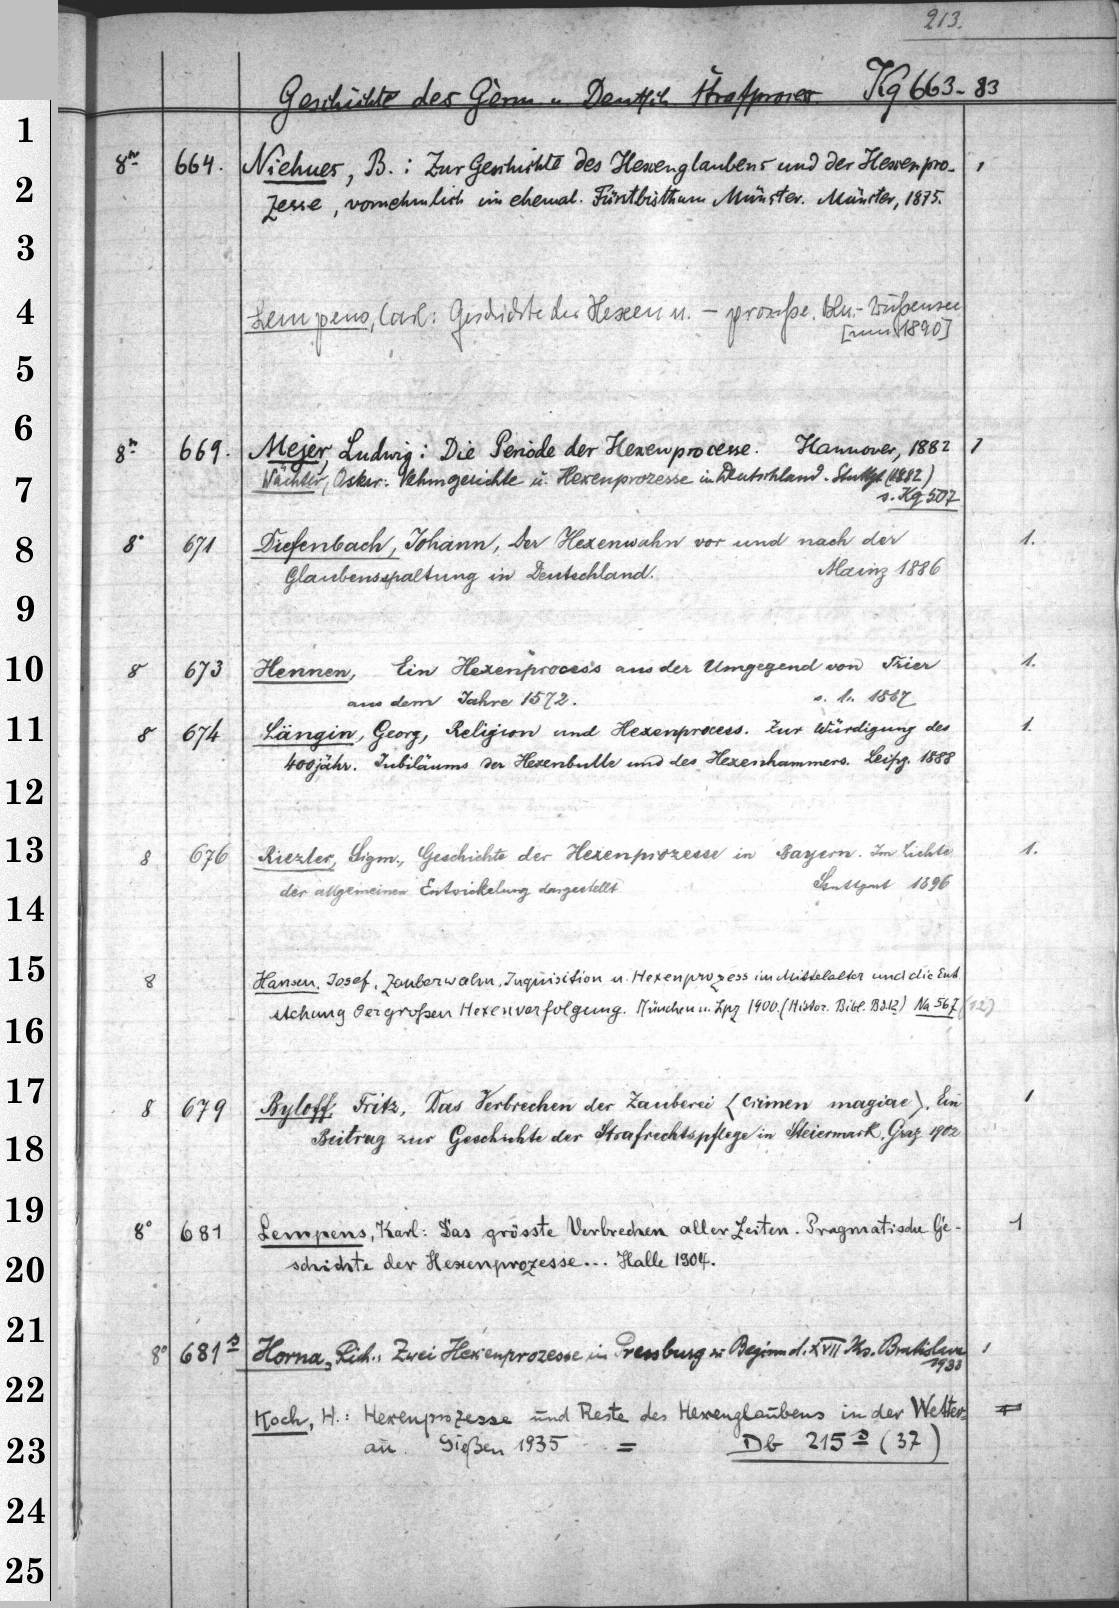 213.
Geschichte des Germ u Deutsch Strafprozes Kg 663-83
1
8° 664. Niehues, B.: Zur Geschichte des Hexenglaubens und der Hexenpro- 1
2
zesse, vornehmlich im ehemal. Fürstbisthum Münster. Münster, 1875.
3
4
Lempens, Carl: Geschichte der Hexen u. – prozesse. Bln.-Weißensee
[1890]
5
6
8° 669. Mejer, Ludwig: Die Periode der Hexenprocesse. Hannover, 1882 1
7
Wächter, Oskar: Vehmgerichte u. Hexenprozesse in Deutschland. Stuttgt (1882)
s. Kg 507
8
8° 671 Diefenbach, Johann, Der Hexenwahn vor und nach der 1.
Glaubensspaltung in Deutschland. Mainz 1886
9
10
8 673 Hennen, Ein Hexenprocess aus der Umgegend von Trier 1.
aus dem Jahre 1572. s. l. 1887
11
8 674 Längin, Georg, Religion und Hexenprocess. Zur Würdigung des 1.
400jähr. Jubiläums der Hexenbulle und des Hexenhammers. Leipz. 1888
12
13
8 676 Riezler, Sigm., Geschichte der Hexenprozesse in Bayern. Im Lichte 1.
der allgemeinen Entwickelung dargestellt Stuttgart 1896
14
15
8 Hansen, Josef, Zauberwahn, Inquisition u. Hexenprozess im Mittelalter und die Ent
stehung der großen Hexenverfolgung. München u. Lpz 1900. (Histor. Bibl. Bd 12) Na 567 (12)
16
17
8 679 Byloff, Fritz, Das Verbrechen der Zauberei (crimen magiae). Ein 1
18
Beitrag zur Geschichte der Strafrechtspflege in Steiermark. Graz 1902
19
8° 681 Lempens, Karl: Das grösste Verbrechen aller Zeiten. Pragmatische Ge- 1
20
schichte der Hexenprozesse... Halle 1904.
21
8° 681 a Horna, Rich.: Zwei Hexenprozesse in Pressburg zu Beginn d. XVII Jhs. Bratislava 1
1933
22
Koch, H.: Hexenprozesse und Reste des Hexenglaubens in der Wetter=
23
au. Gießen 1935 = Db 215 a (37)
24
25